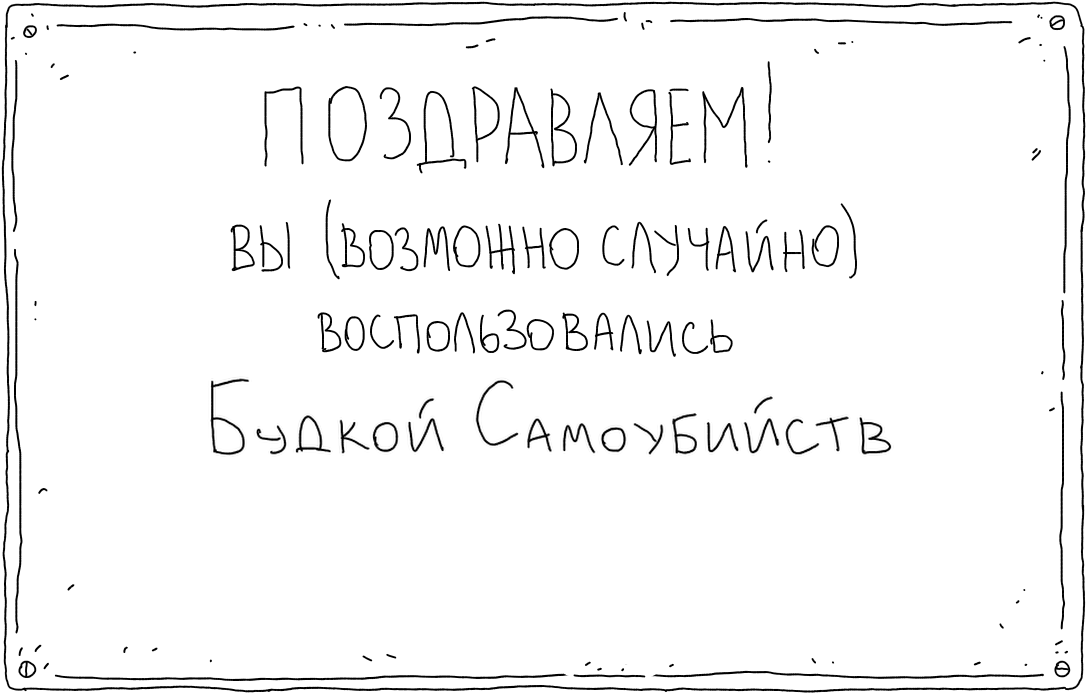 ПОЗДРАВЛЯЕМ!
ВЫ (ВОЗМОЖНО СЛУЧАЙНО)
ВОСПОЛЬЗОВАЛИСЬ
БУДКОЙ САМОУБИЙСТВ